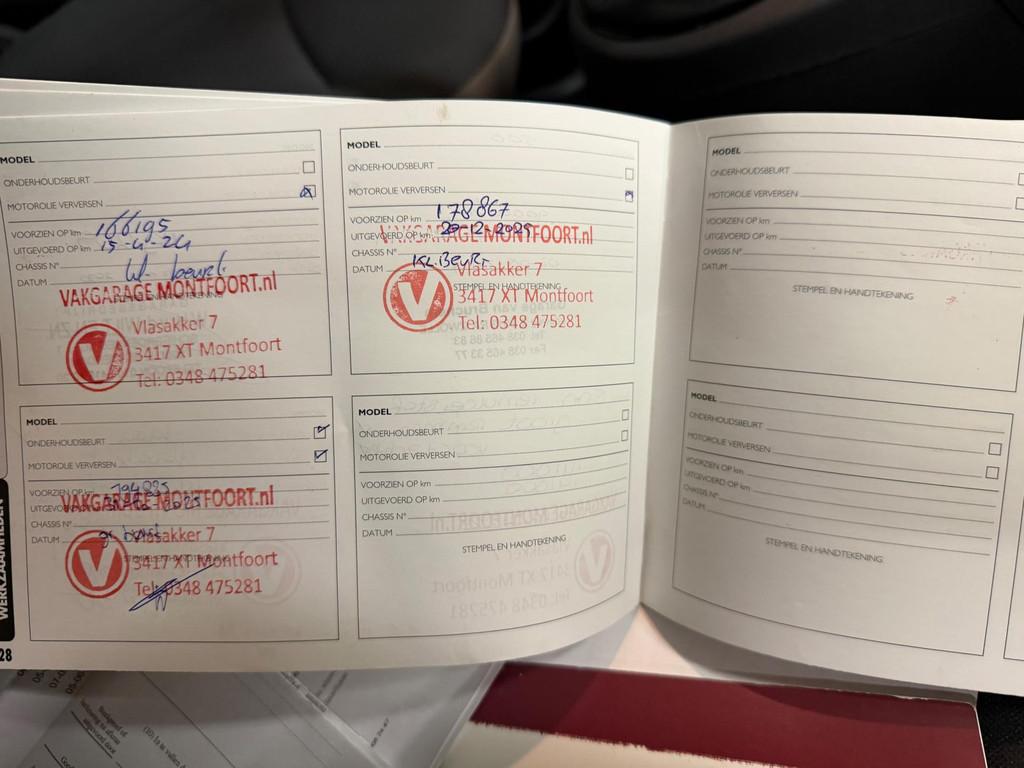 MODEL
ONDERHOUDSBEURT
MOTOROLIE VERVERSEN
VOORZIEN OP km 166195
UITGEVOERD OP km 15-4-24
CHASSIS N°
DATUM
VAKGARAGE MONTFOORT.nl
Vlasakker 7
3417 XT Montfoort
Tel: 0348 475281
MODEL
ONDERHOUDSBEURT
MOTOROLIE VERVERSEN
VOORZIEN OP km 178867
UITGEVOERD OP km 20-12-2025
CHASSIS N°
DATUM KL. Beurt
VAKGARAGE MONTFOORT.nl
STEMPEL EN HANDTEKENING
Vlasakker 7
3417 XT Montfoort
Tel: 0348 475281
MODEL
ONDERHOUDSBEURT
MOTOROLIE VERVERSEN
VOORZIEN OP km
UITGEVOERD OP km
CHASSIS N°
DATUM
STEMPEL EN HANDTEKENING
MODEL
ONDERHOUDSBEURT
MOTOROLIE VERVERSEN
VOORZIEN OP km
2025
CHASSIS N°
DATUM
VAKGARAGE MONTFOORT.nl
Vlasakker 7
3417 XT Montfoort
Tel: 0348 475281
MODEL
ONDERHOUDSBEURT
MOTOROLIE VERVERSEN
VOORZIEN OP km
UITGEVOERD OP km
CHASSIS N°
DATUM
STEMPEL EN HANDTEKENING
MODEL
ONDERHOUDSBEURT
MOTOROLIE VERVERSEN
VOORZIEN OP km
UITGEVOERD OP km
CHASSIS N°
DATUM
STEMPEL EN HANDTEKENING
WERKZAAMHEDEN
28